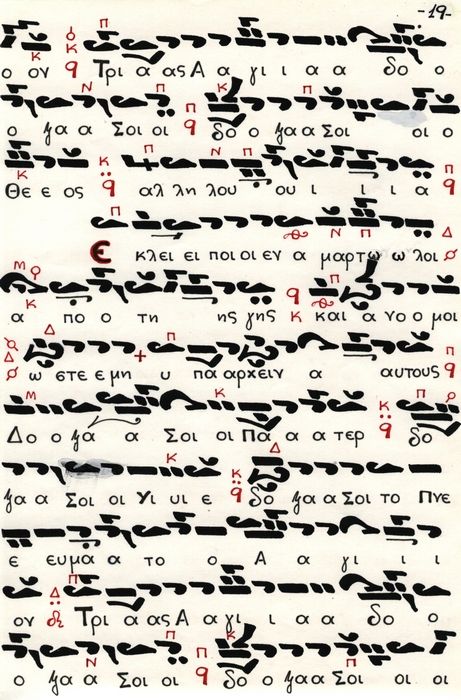 -19-
ο ον Τρι α ας Α α γι ι α α δο ο
ο ξα α Σοι οι δο ο ξα α Σοι οι ο
Θε ε ος αλ λη λου ου ι ι ι α
Ε κλει ει ποι οι εν α μαρτω ω λοι
α πο ο τη ης γης και α νο ο μοι
ω στε ε μη υ πα αρχειν α αυτους
Δο ο ξα α Σοι οι Πα α α τερ δο
ξα α Σοι οι Υι υι ε δο ξα α Σοι το Πνε
ε ευμα α το ο Α α γι ι ι
ον Τρι α ας Α α γι ι α α δο ο
ο ξα α Σοι οι δο ο ξα α Σοι οι οι